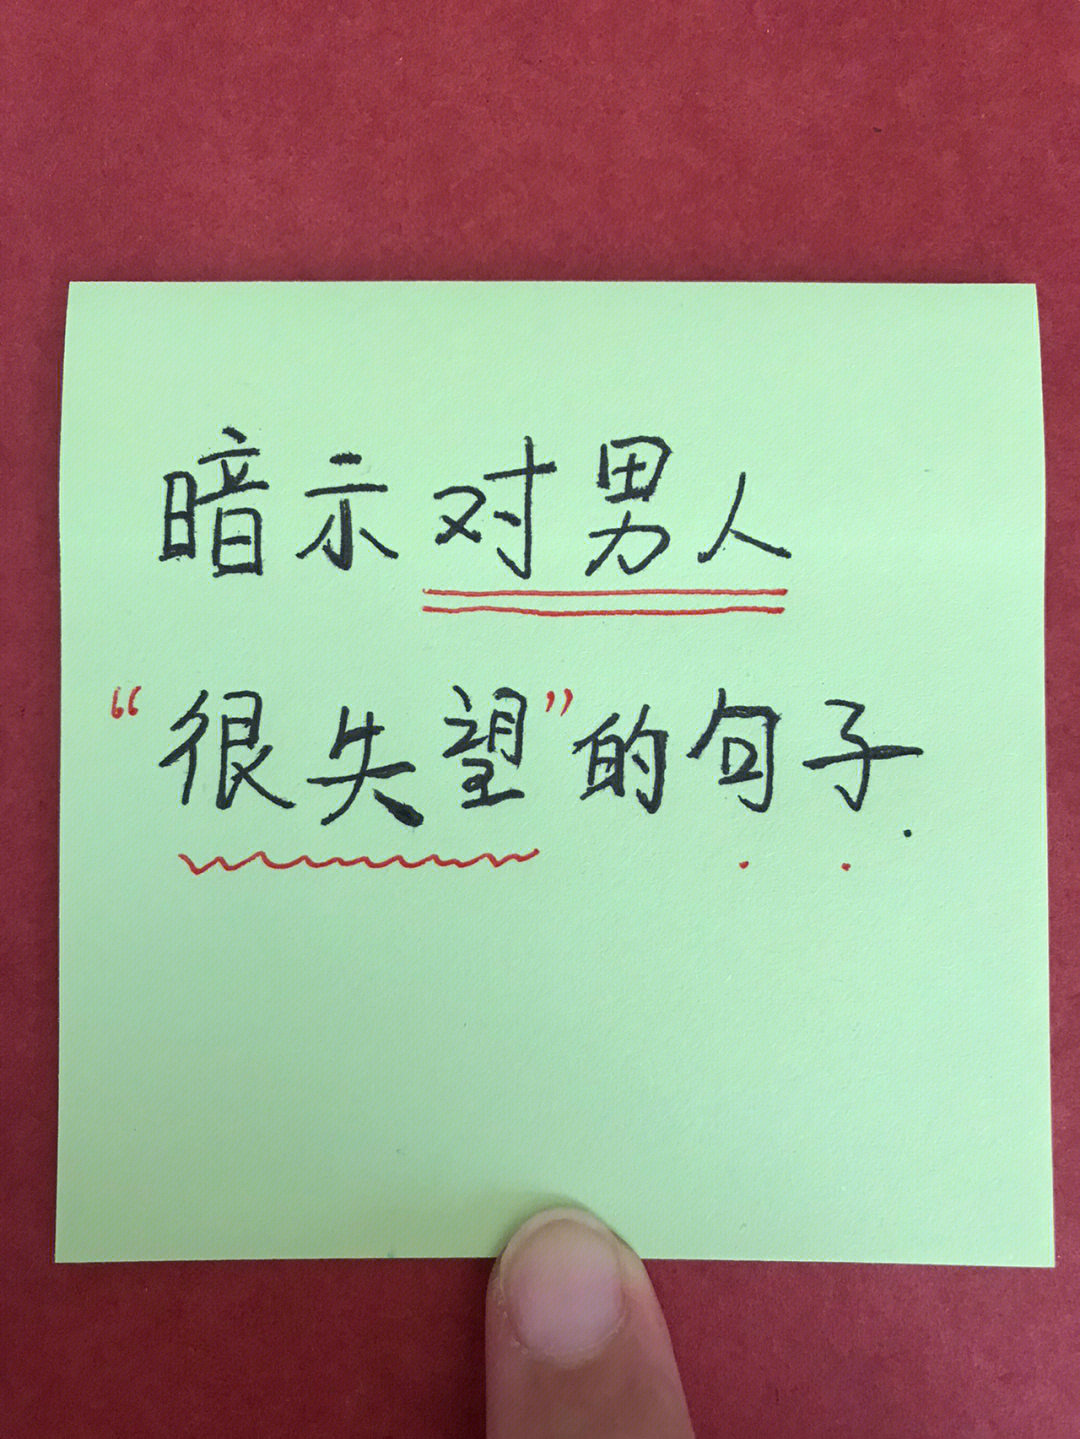 暗示对男人
“很失望”的句子.